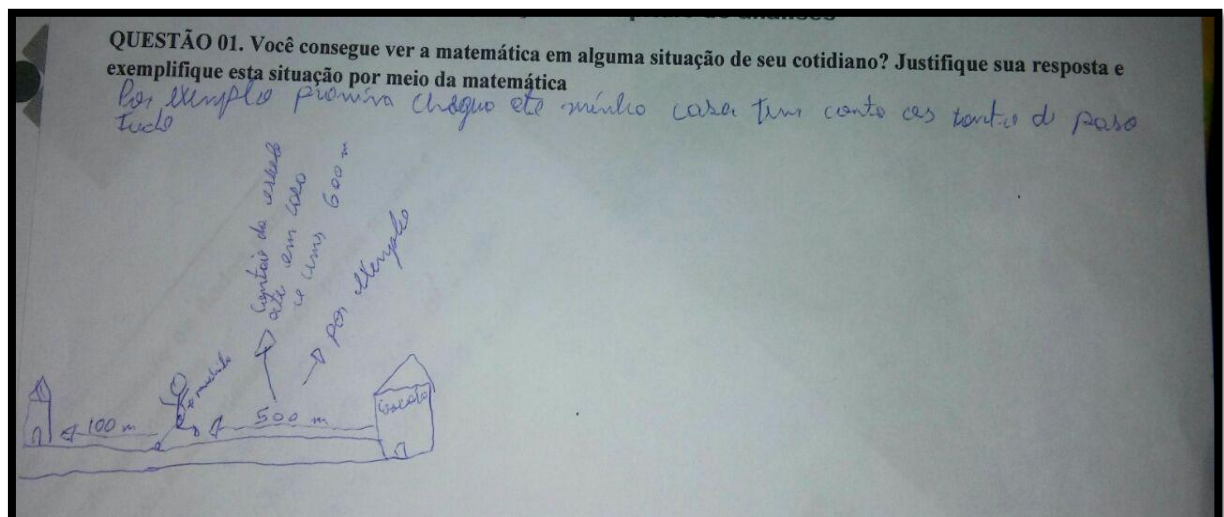 QUESTÃO 01. Você consegue ver a matemática em alguma situação de seu cotidiano? Justifique sua resposta e
exemplifique esta situação por meio da matemática
Por exemplo chegua ete minho casa tem conto as de paso
tudo
da
ate em
600 m
por exemplo
100 m
500 m
escola